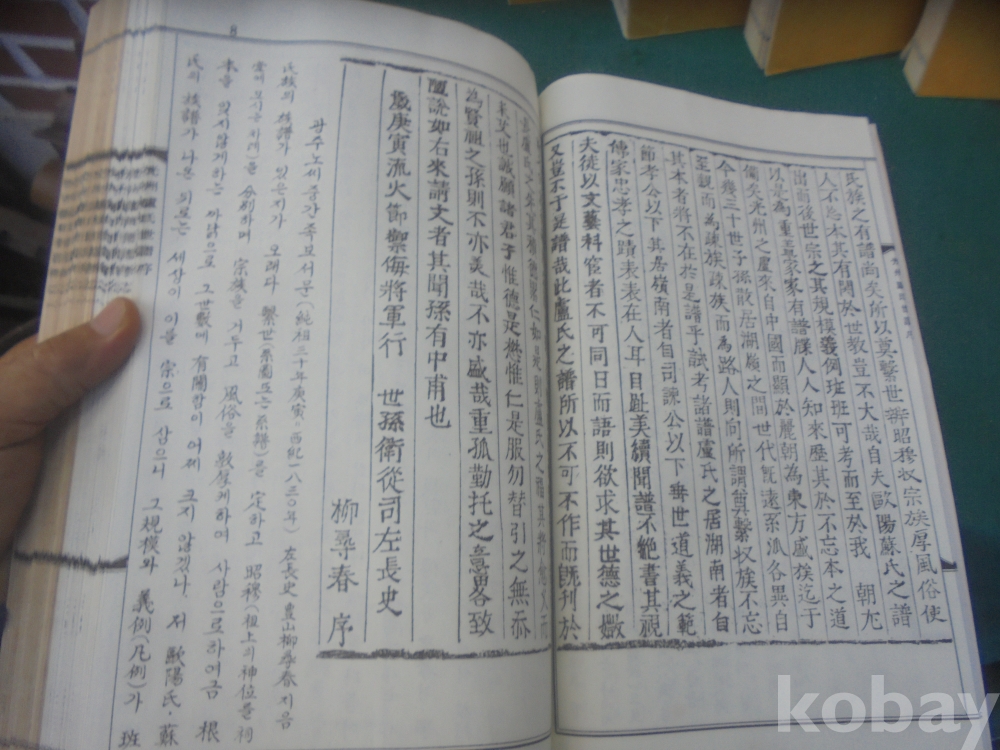 民族之有譜尚矣所以奠繫世辨昭穆收宗族厚風俗使
人不忘本其有關於世教豈不大哉自夫歐陽蘇氏之譜
出而後世宗之其規模義例班班可考而至於我 朝尤
以是為重焉家家有譜牒人人知來歷其於不忘本之道
備矣光州之盧來自中國而顯於麗朝為東方盛族迄于
今幾三十世子孫散居湖嶺之間世代旣遠系派各異自
至親而為疎族疎族而為路人則向所謂奠繫收族不忘
其本者將不在於是譜乎試考諸譜盧氏之居湖南者自
節孝公以下其居嶺南者自司諫公以下奕世道義之範
傳家忠孝之蹟表表在人耳目趾美續聞譜不絶書其視
夫徒以文藝科宦者不可同日而語則欲求其世德之媺
又豈不于是譜哉此盧氏之譜所以不可不作而旣刊於
來又也誠願諸君子惟德是懋惟仁是服勿替引之無忝
為賢祖之孫則不亦美哉不亦盛哉重孤勤托之意畧致
陋說如右來請文者其聞孫有中甫也
歲庚寅流火節禦侮將軍行 世孫衛從司左長史
柳尋春 序
광주노씨중간족보서문(純祖三十年庚寅·西紀一八三○年) 左長史 豊山柳尋春 지음
氏族의 族譜가 있은지가 오래다 繫世(系圖또는系譜)를 定하고 昭穆(祖上의神位를祠
堂에모시는차례)를 分別하며 宗族을 거두고 風俗을 敦厚케하여 사람으로하여금 根
本을 잊지않게하는 까닭으로 그世敎에 有關함이 어찌 크지 않겠나. 저 歐陽氏·蘇
氏의 族譜가 나온 뒤로는 세상이 이를 宗으로 삼으니 그規模와 義例(凡例)가 班
8
kobay